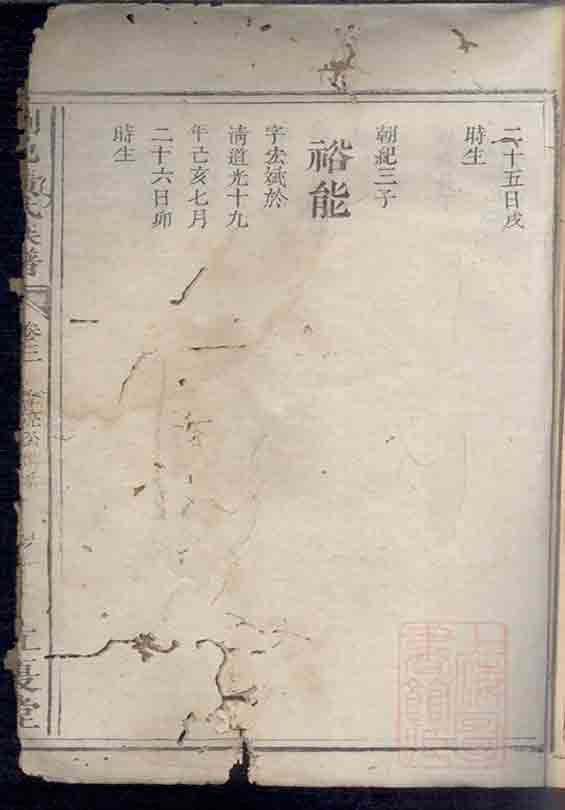 二十五日戌
時生
朝紀三子
裕能
字宏斌於
清道光十九
年己亥七月
二十六日卯
時生
氏族譜
卷三
江夏堂